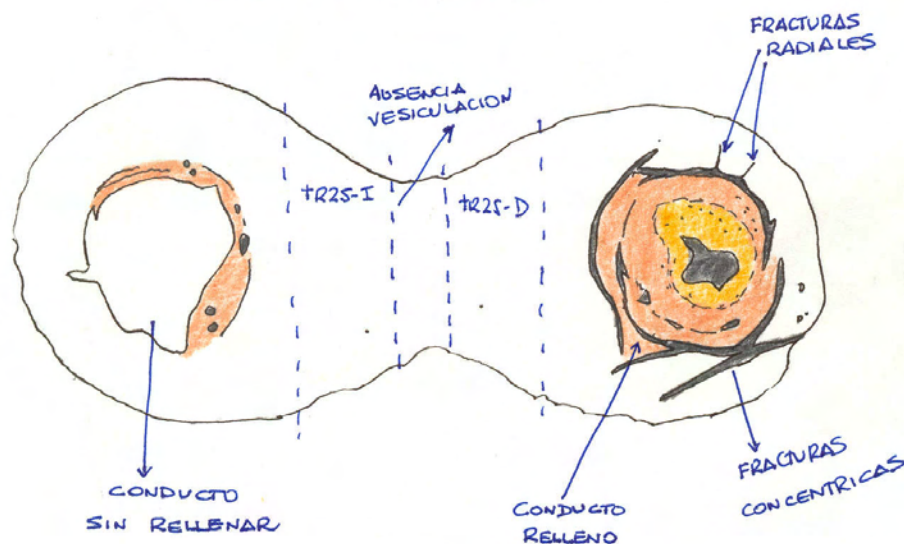 FRACTURAS
RADIALES
AUSENCIA
VESICULACION
TR25-I
TR25-D
CONDUCTO
SIN RELLENAR
CONDUCTO
RELLENO
FRACTURAS
CONCENTRICAS